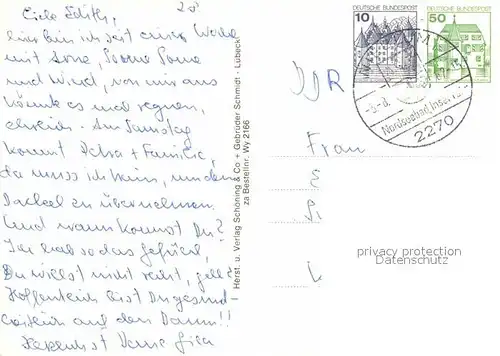 Liebe Edith,
hier bin ich seit einer Woche
mit Sonne, Sonne Sonne
und Wind, von mir aus
könnte es mal regnen,
ehrlich. Am Samstag
kommt + Familie,
da muss ich heim, um den
Dackel zu übernehmen.
Und wann kommst Du?
Ich hab so das Gefühl,
Du willst nicht recht, gell?
Hoffentlich bist Du gesund-
heitlich auf dem Damm!!
Herzlichst Deine
Herst. u. Verlag Schöning & Co + Gebrüder Schmidt · Lübeck
za Bestellnr. Wy 2166
DEUTSCHE BUNDESPOST
10
DEUTSCHE BUNDESPOST
50
Nordseebad, Insel
2270
Frau
privacy protection
Datenschutz